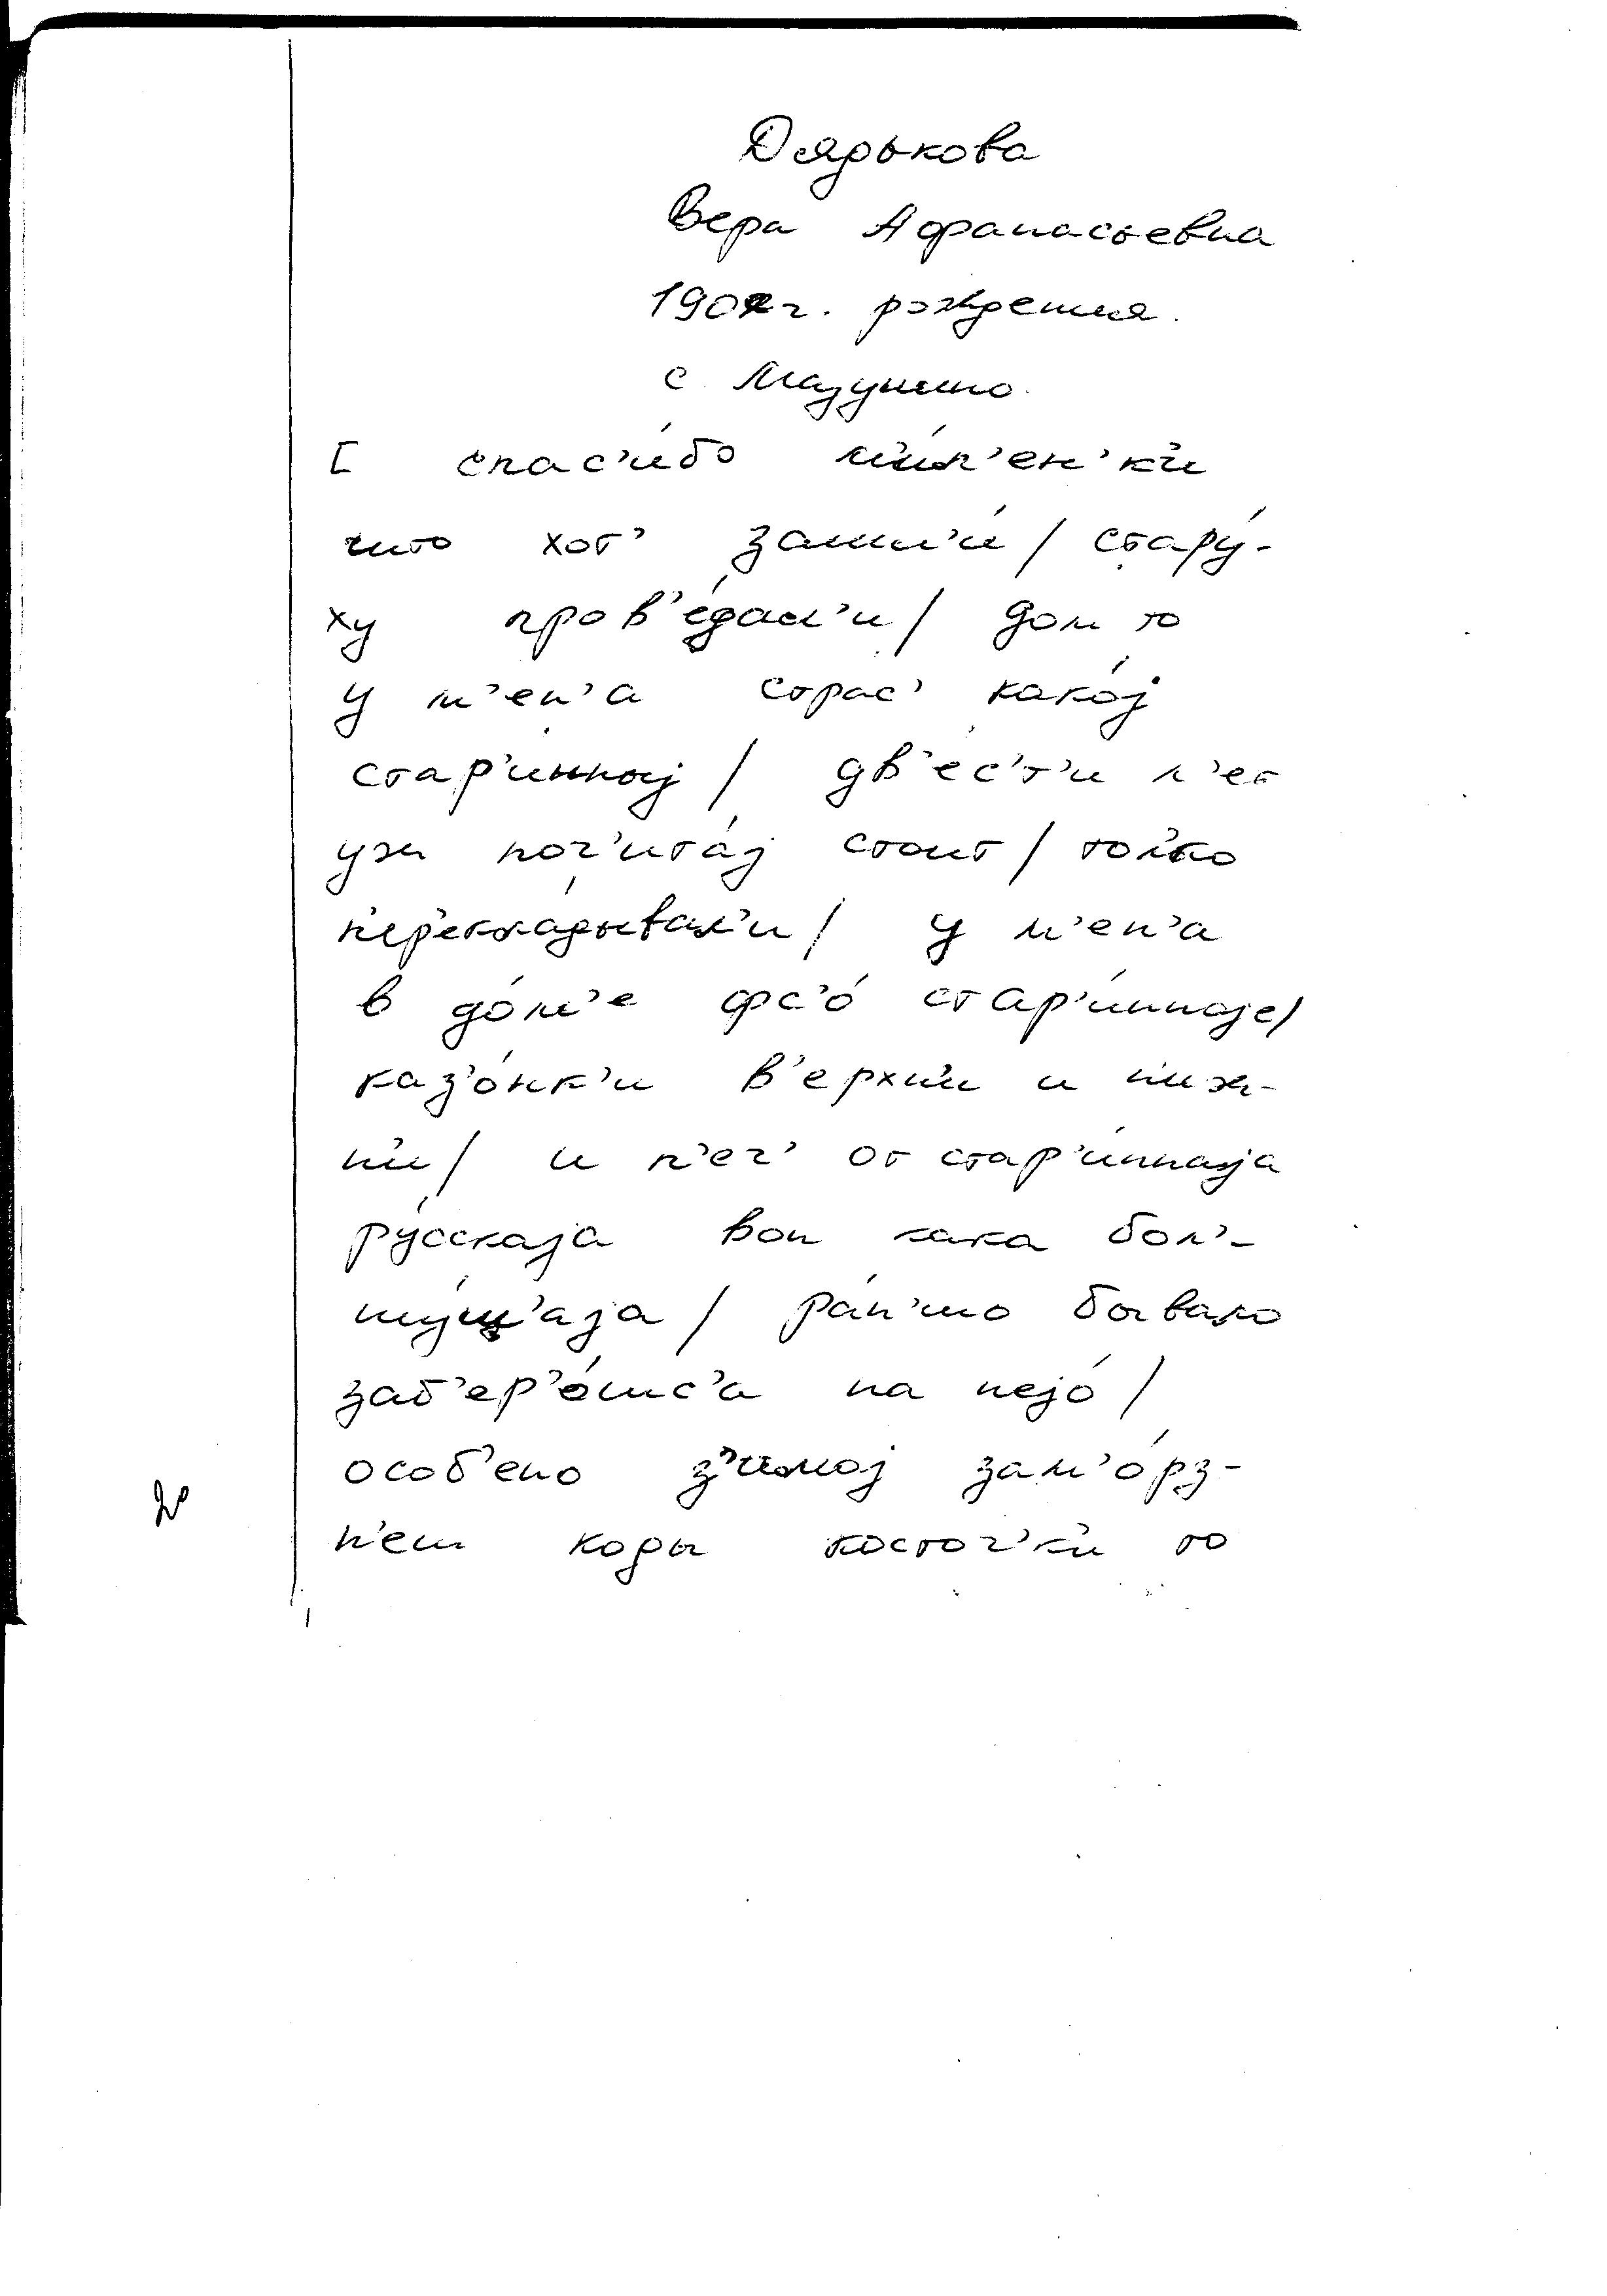 Деярькова
Вера Афанасьевна
190 г. рождения.
с. Мазунино.
[ спас'и́бо м'и́л'ен'к'и
што хот' зашл'и́ / стару́-
ху пров'е́дал'и / дом то
у м'ен'а страс' како́j
стар'и́нноj / дв'ес'т'и л'ет
уж поч'ита́j стоит / тол'ко
п'ер'екла́дывал'и / у м'ен'а
в до́м'е фс'о́ стар'и́нноjе /
каз'о́нк'и в'ерхн'и и ниж-
н'и / и п'еч' от стар'и́ннаjа
ру́сскаjа вон кака бол'-
шу́щ'аjа / ра́н'шо бывало
заб'ер'о́шс'а на неjо́ /
особ'ено з'имоj зам'о́рз-
н'еш коды косточ'к'и то